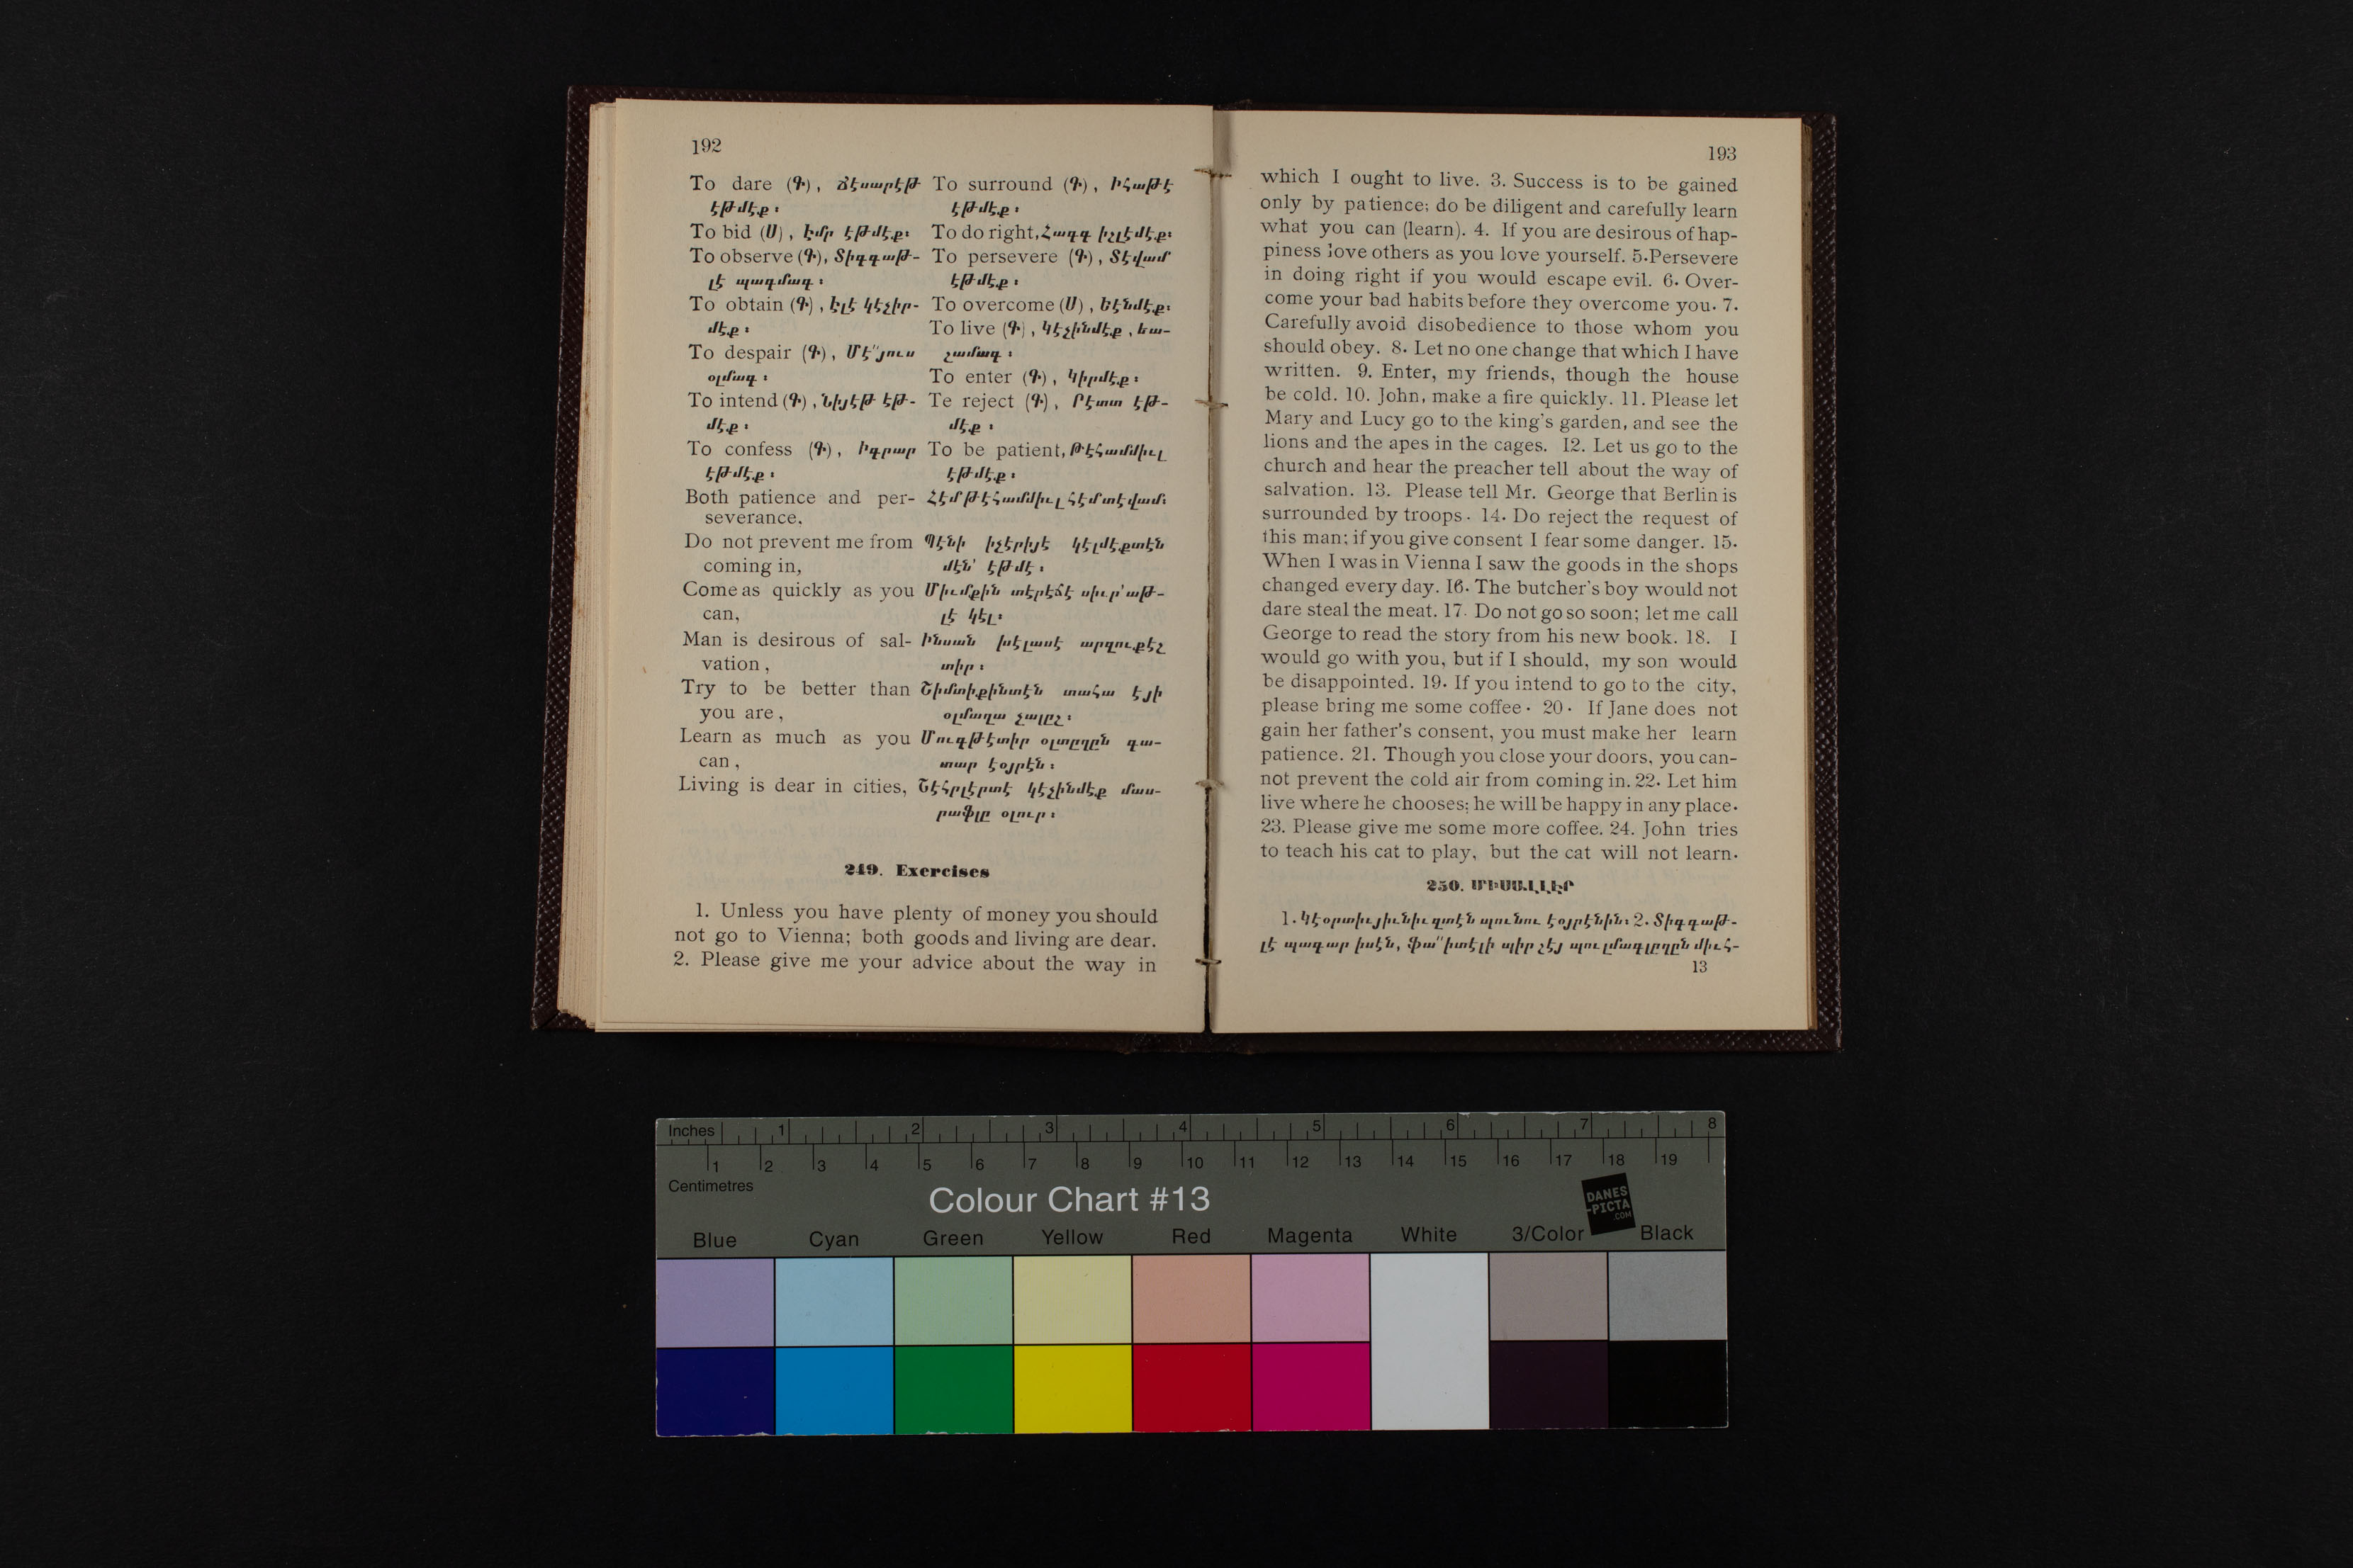 192
To dare (Գ), Ճէսարէթ
էթմէք։
To bid (Ս), Էմր էթմէք։
To observe (Գ), Տիգգաթ-
լէ պագմագ։
To obtain (Գ), Էլէ կէչիր-
մէք։
To despair (Գ), Մէ՛՛յուս
օլմագ։
To intend (Գ), Նիյէթ էթ-
մէք։
To confess (Գ), Իգրար
էթմէք։
Both patience and per-
severance,
Do not prevent me from
coming in,
Come as quickly as you
can,
Man is desirous of sal-
vation,
Try to be better than
you are,
Learn as much as you
can,
Living is dear in cities,
To surround (Գ), Իհաթէ
էթմէք։
To do right, Հագգ իշլէմէք։
To persevere (Գ), Տէվամ
էթմէք։
To overcome (Ս), Եէնմէք։
To live (Գ), Կէչինմէք, եա-
շամագ։
To enter (Գ), Կիրմէք։
Te reject (Գ), Րէտտ էթ-
մէք։
To be patient, Թէհամմիւլ
էթմէք։
Հէմ թէհամմիւլ հէմ տէվամ։
Պէնի իչէրիյէ կէլմէքտէն
մէն՛ էթմէ։
Միւմքին տէրէճէ սիւր՛աթ-
լէ կէլ։
Ինսան խէլասէ արզուքէշ
տիր։
Շիմտիքինտէն տահա էյի
օլմաղա չալըշ։
Մուգթէտիր օլտըղըն գա-
տար էօյրէն։
Շէհրլէրտէ կէչինմէք մաս-
րաֆլը օլուր։
249. Exercises
1. Unless you have plenty of money you should
not go to Vienna; both goods and living are dear.
2. Please give me your advice about the way in
193
which I ought to live. 3. Success is to be gained
only by patience; do be diligent and carefully learn
what you can (learn). 4. If you are desirous of hap-
piness love others as you love yourself. 5. Persevere
in doing right if you would escape evil. 6. Over-
come your bad habits before they overcome you. 7.
Carefully avoid disobedience to those whom you
should obey. 8. Let no one change that which I have
written. 9. Enter, my friends, though the house
be cold. 10. John, make a fire quickly. 11. Please let
Mary and Lucy go to the king's garden, and see the
lions and the apes in the cages. 12. Let us go to the
church and hear the preacher tell about the way of
salvation. 13. Please tell Mr. George that Berlin is
surrounded by troops. 14. Do reject the request of
this man; if you give consent I fear some danger. 15.
When I was in Vienna I saw the goods in the shops
changed every day. 16. The butcher's boy would not
dare steal the meat. 17. Do not go so soon; let me call
George to read the story from his new book. 18. I
would go with you, but if I should, my son would
be disappointed. 19. If you intend to go to the city,
please bring me some coffee. 20. If Jane does not
gain her father's consent, you must make her learn
patience. 21. Though you close your doors, you can-
not prevent the cold air from coming in. 22. Let him
live where he chooses; he will be happy in any place.
23. Please give me some more coffee. 24. John tries
to teach his cat to play, but the cat will not learn.
250. ՄԻՍԱԼԼԷՐ
1. Կէօրտիւյիւնիւզտէն պունու էօյրէնին։ 2. Տիգգաթ-
լէ պագար իսէն, ֆա՛՛իտէլի պիր շէյ պուլմագլըղըն միւհ-
13
Inches 1 2 3 4 5 6 7 8
1 2 3 4 5 6 7 8 9 10 11 12 13 14 15 16 17 18 19
Centimetres
Colour Chart #13
DANES
-PICTA
.COM
Blue Cyan Green Yellow Red Magenta White 3/Color Black